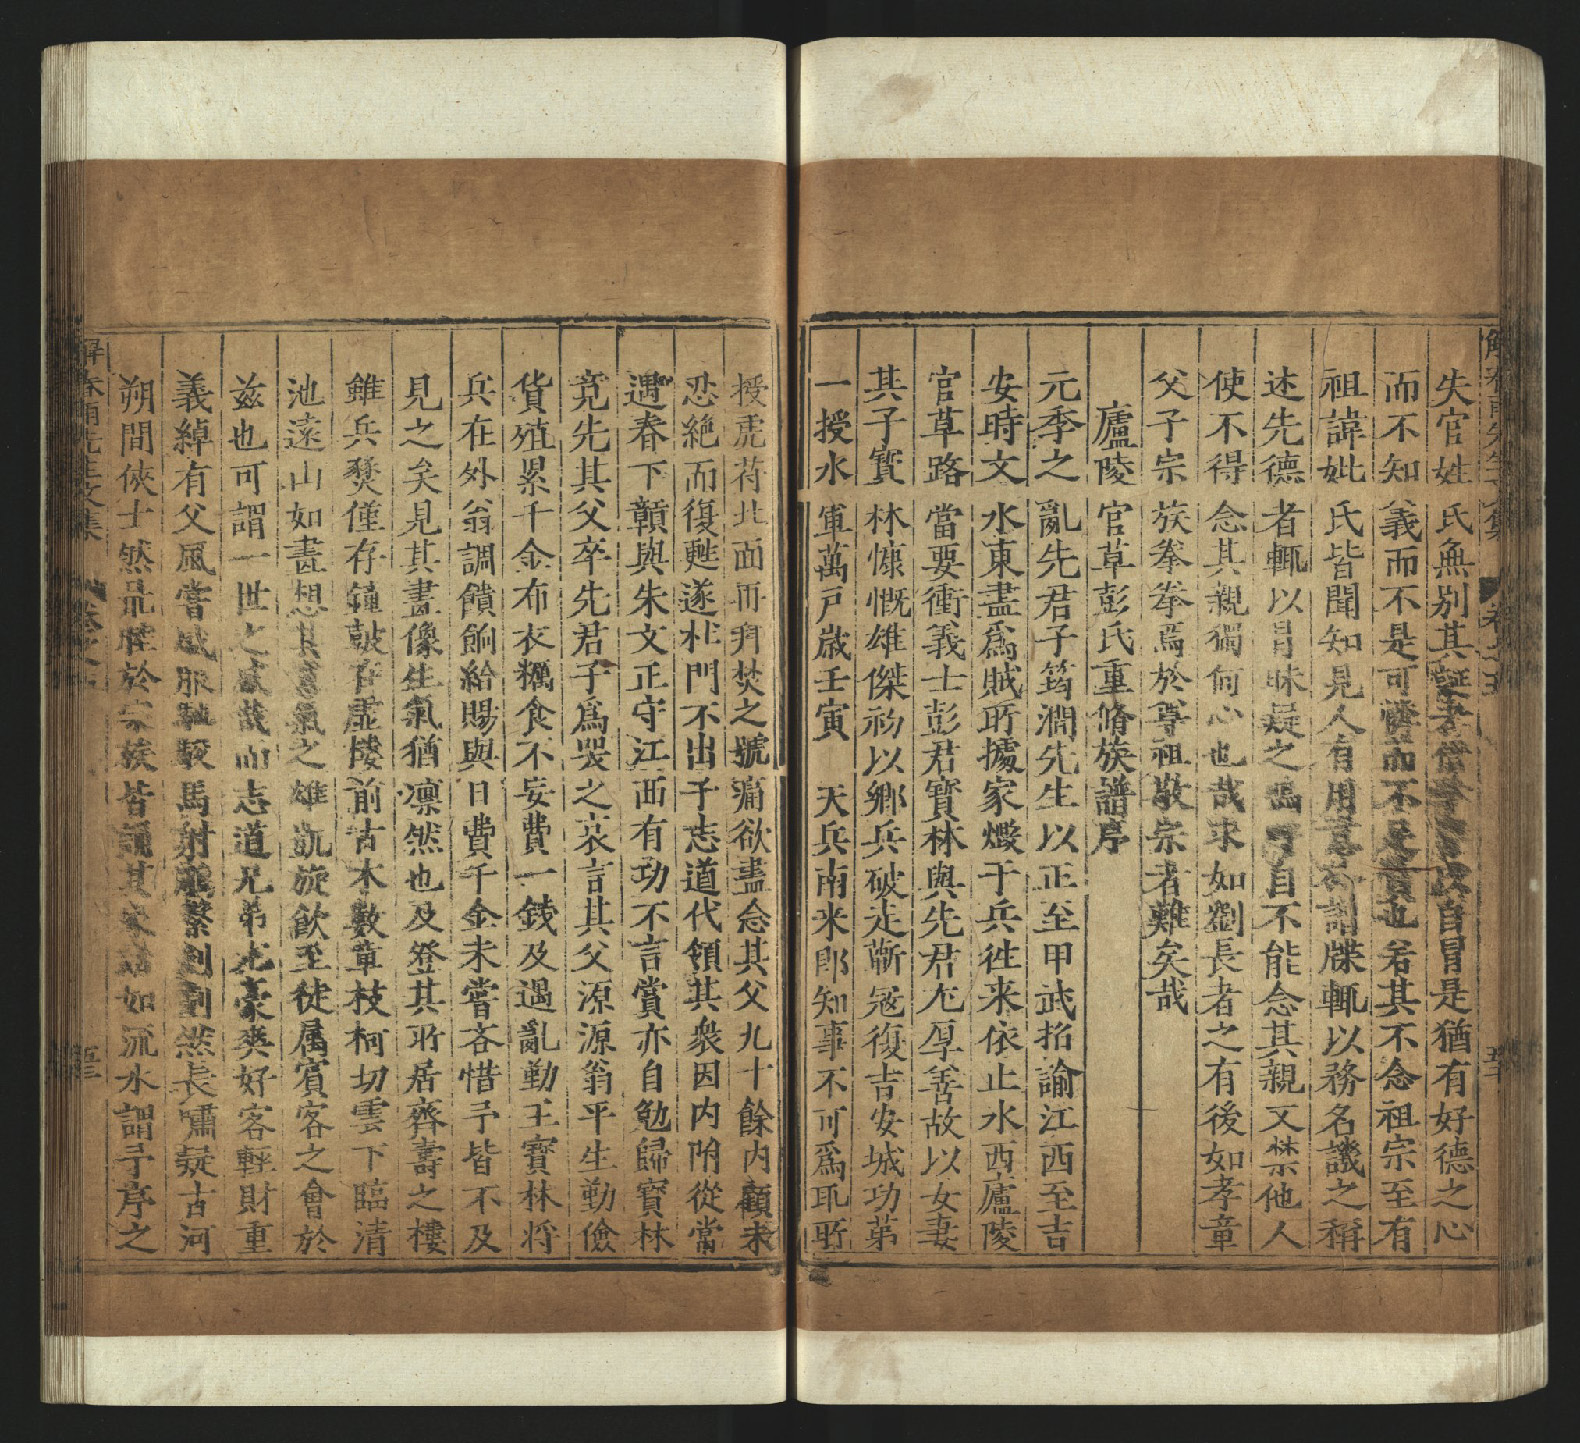 失官姓氏無別其自冒是猶有好德之心
而不知義而不是可也若其不念祖宗至有
祖諱妣氏皆聞知見人有用譜牒輒以務名譏之稱
述先德者輒以冒昧疑之自不能念其親又禁他人
使不得念其親獨何心也哉求如劉長者之有後如孝章
父子宗族拳拳焉於尊祖敬宗者難矣哉
廬陵官草彭氏重脩族譜序
元季之亂先君子筠澗先生以正至甲武招諭江西至吉
安時文水東盡爲賊所據家燬于兵徃来依止水西廬陵
官草路當要衝義士彭君寳林與先君尤厚善故以女妻
其子寳林慷慨雄傑初以鄉兵破走蘄冦復吉安城功苐
一授水軍萬戸歲壬寅天兵南来郎知事不可爲耻所
授虎符北面而拜焚之號痛欲盡念其父九十餘内顧未
忍絶而復甦遂杜門不出子志道代領其衆因内附從常
遇春下贑與朱文正守江西有功不言賞亦自勉歸寳林
竟先其父卒先君子爲哭之哀言其父源源翁平生勤儉
貨殖累千金布衣糲食不妄費一錢及遇亂勤王寳林将
兵在外翁調饋餉給賜與日費千金未嘗吝惜予皆不及
見之矣見其畫像生氣猶凛然也及登其所居齊壽之樓
雖兵燹僅存鐘鼓在虚樓前古木數章枝柯切雲下臨清
池遠山如畫想其氣之雄凱旋飲至徒属賓客之會於
兹也可謂一世之盛哉而志道兄弟尤豪爽好客輕財重
義綽有父風嘗馬射擊劍劃然長嘯疑古河
朔間俠士然於宗族皆誦其如流水謂予序之